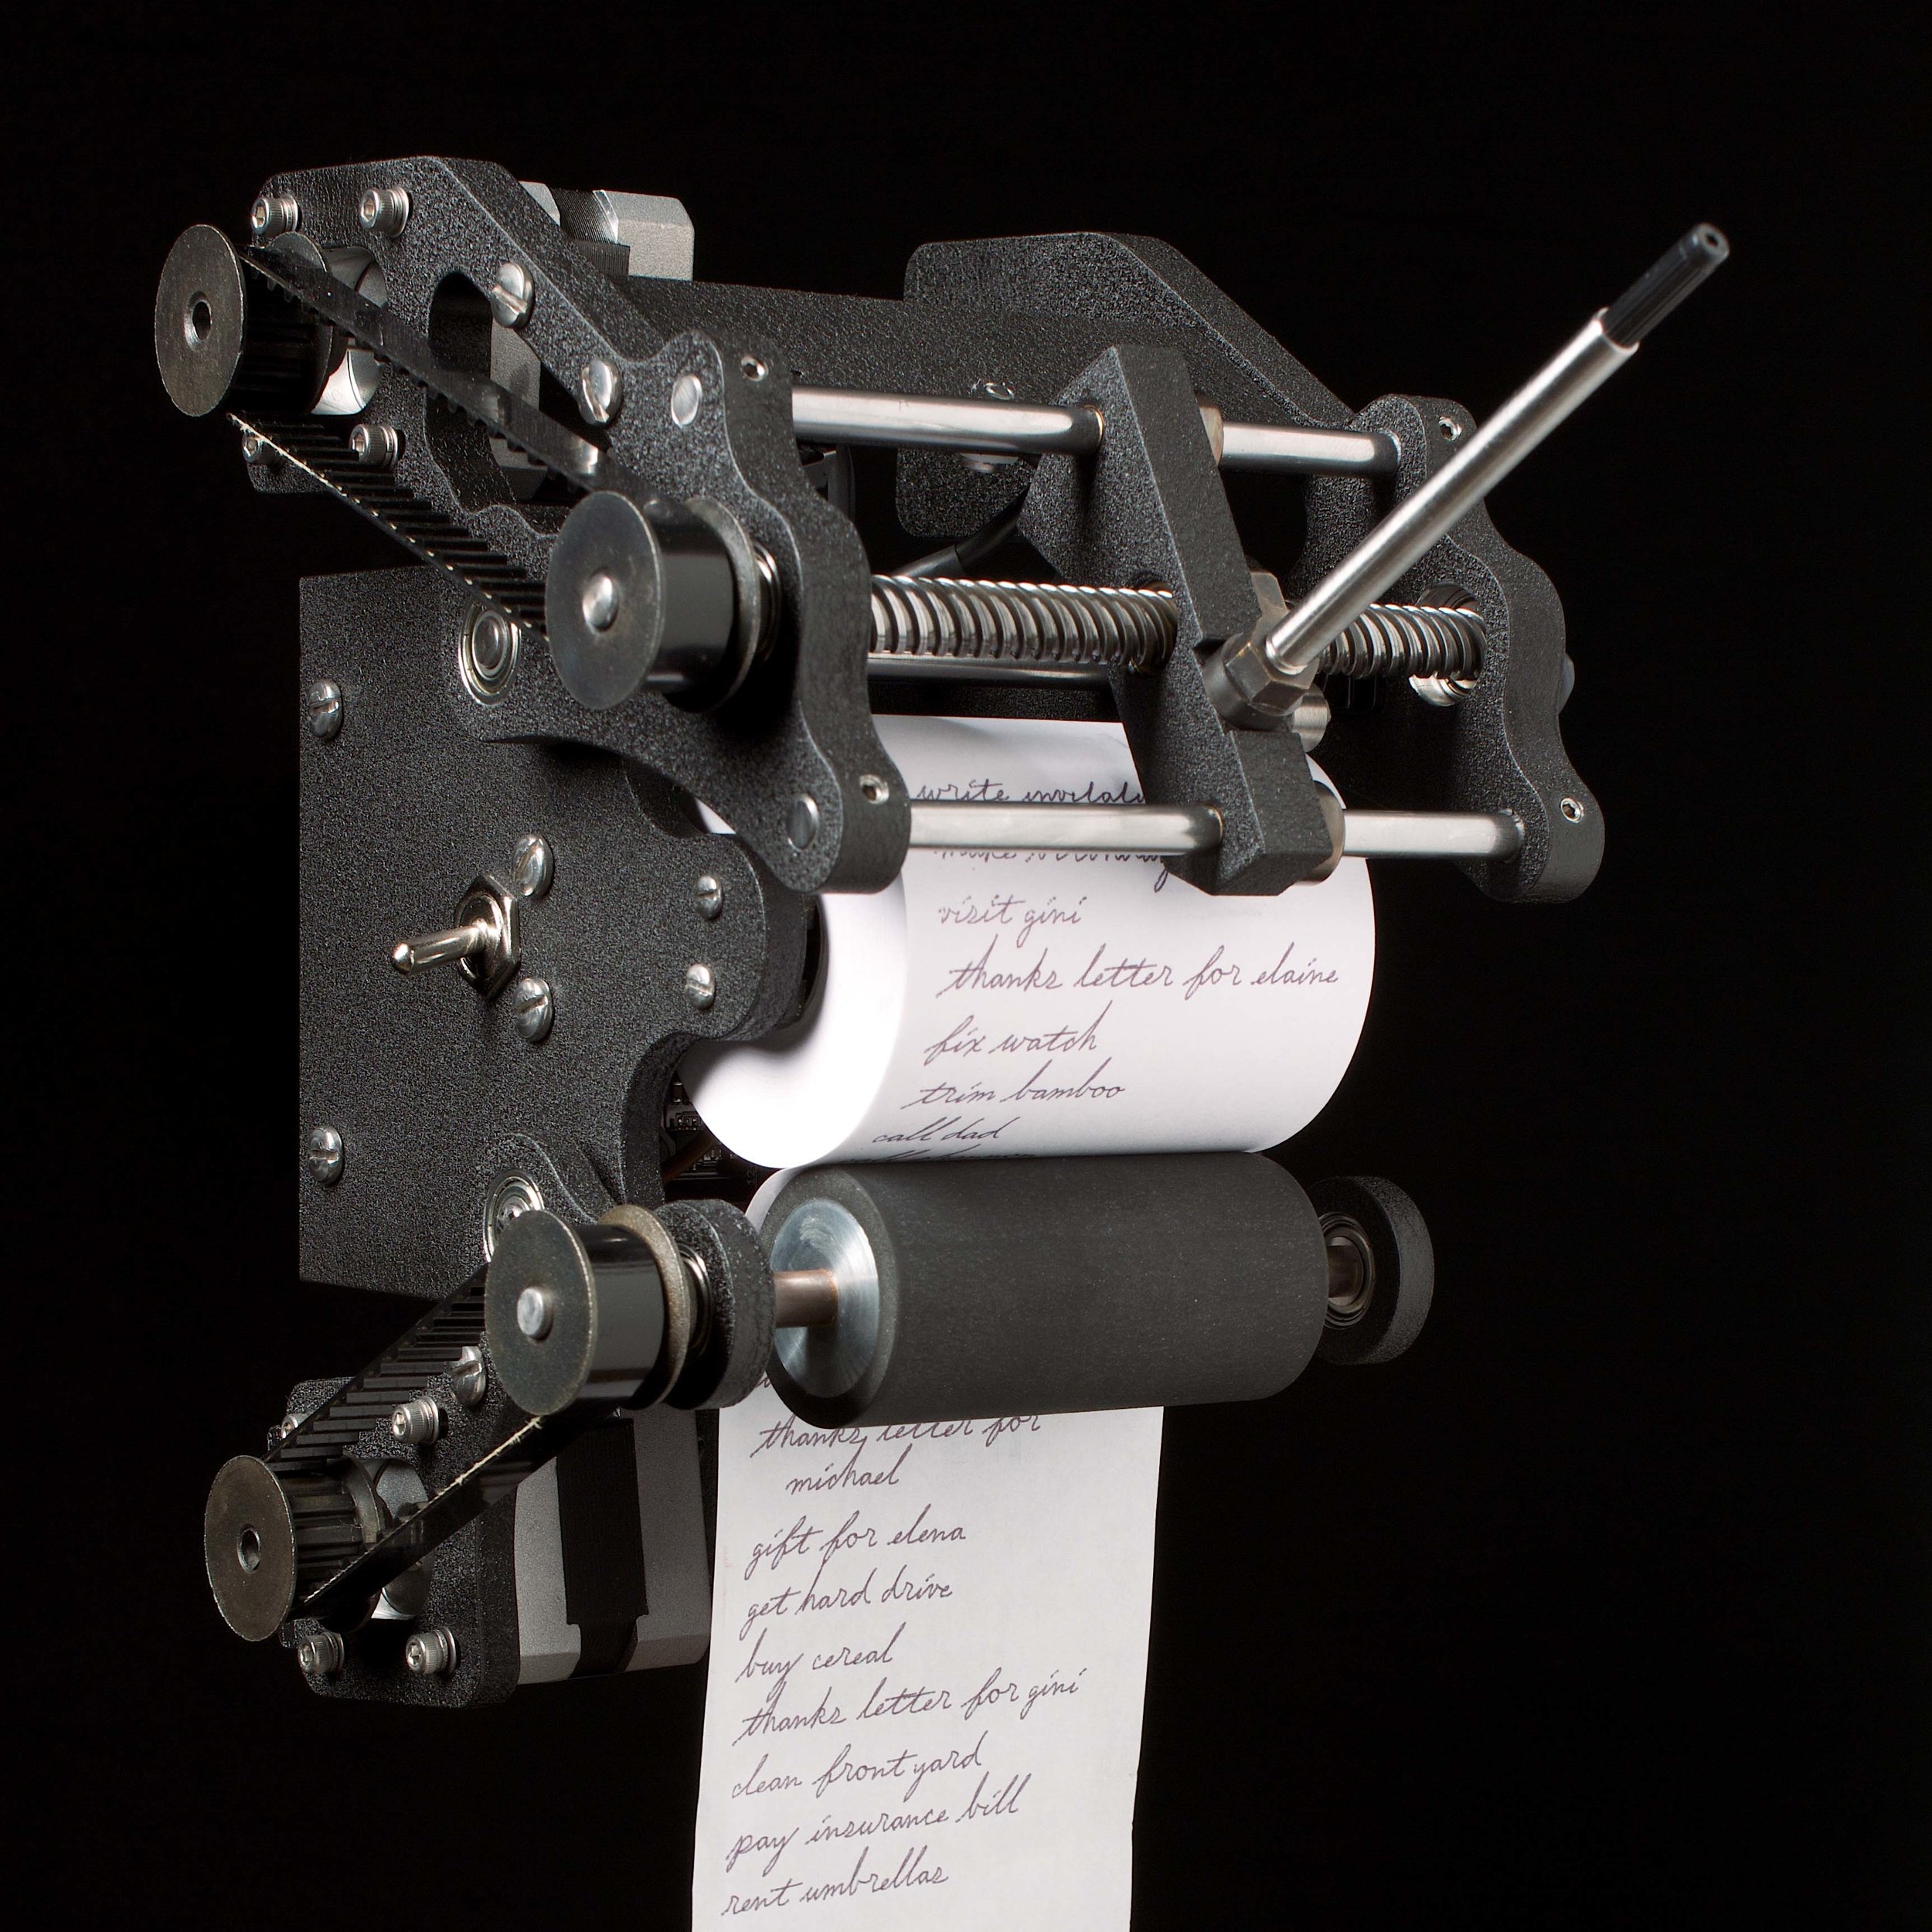 write
visit gini
thanks letter for elaine
fix watch
trim bamboo
call dad
thanks letter for
michael
gift for elena
get hard drive
buy cereal
thanks letter for gini
clean front yard
pay insurance bill
rent umbrellas